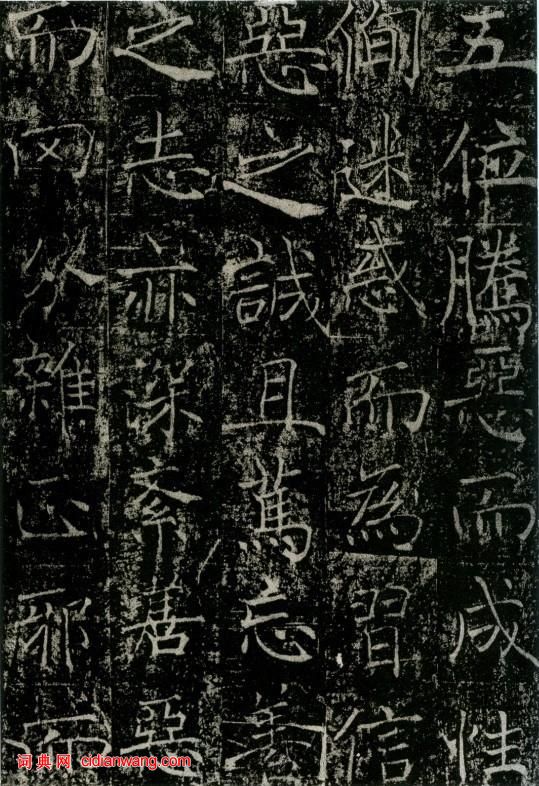 五位騰惡而成性
徇迷惑而為習信
惡之誠且篤忘善
之志亦深紊善惡
而罔分雜正邪而
词典网 cidianwang.com